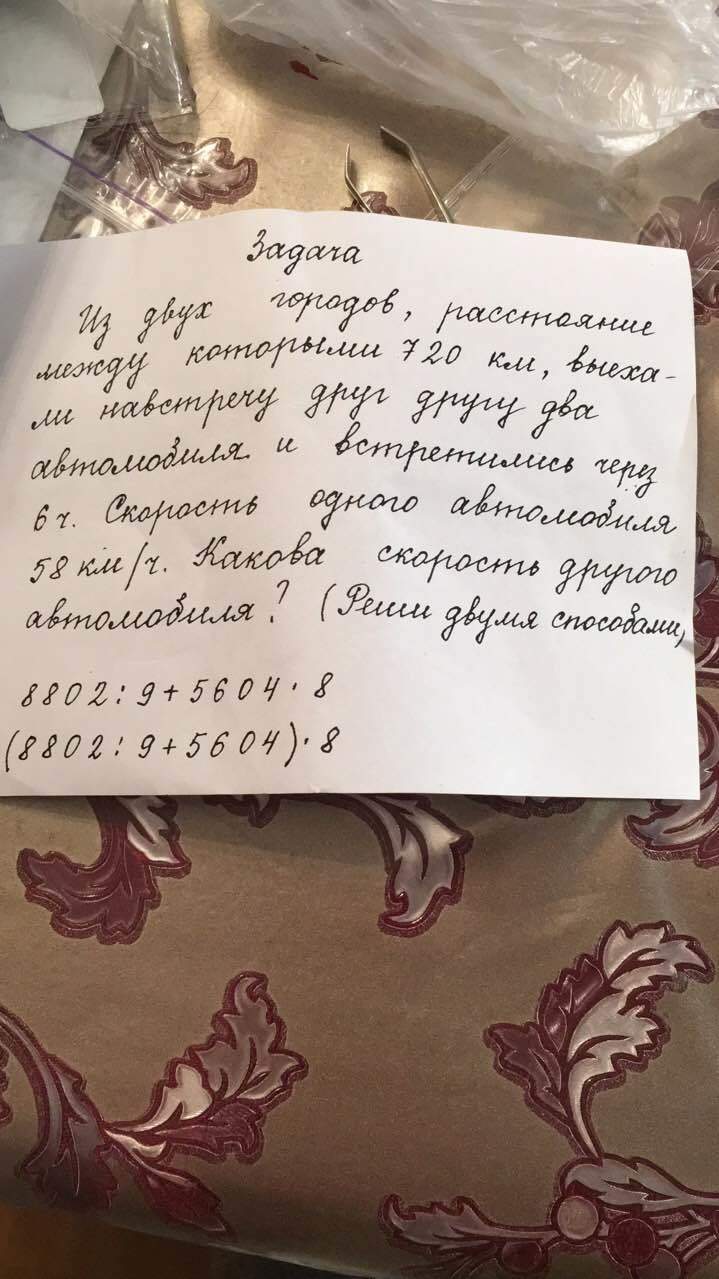 Задача
Из двух городов, расстояние
между которыми 720 км, выеха-
ли навстречу друг другу два
автомобиля и встретились через
6 ч. Скорость одного автомобиля
58 км/ч. Какова скорость другого
автомобиля? (Реши двумя способами,
8802:9+5604·8
(8802:9+5604)·8